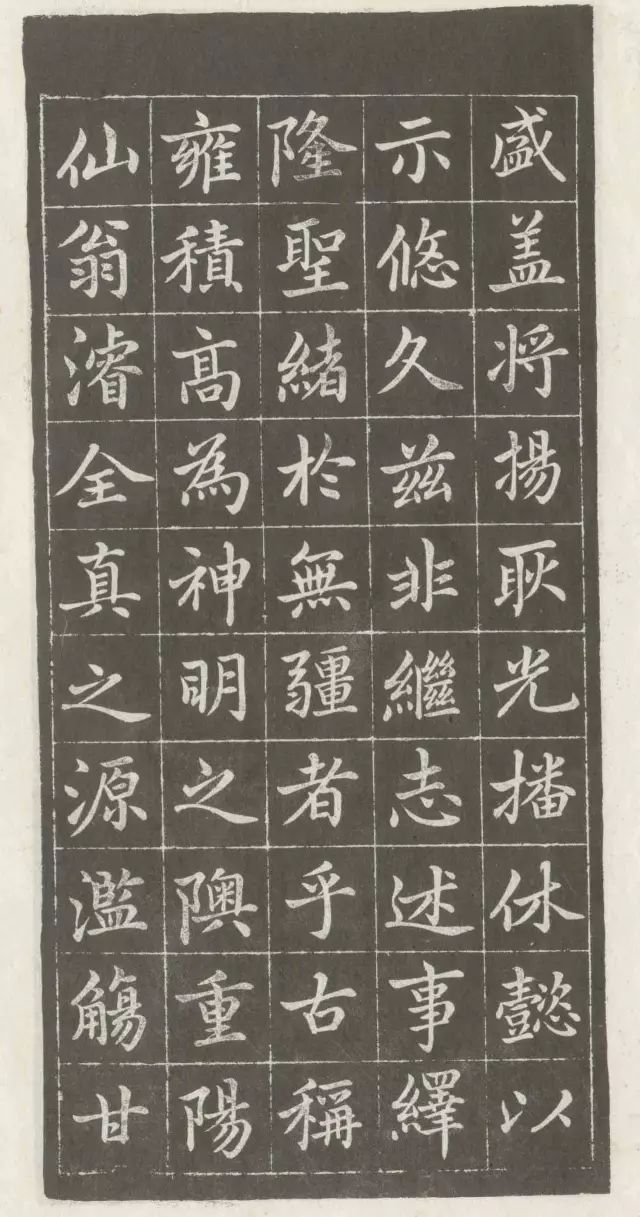 盛盖将揚耿光播休懿以
示悠久茲非繼志述事繹
隆聖緒於無疆者乎古稱
雍積高為神明之隩重陽
仙翁濬全真之源濫觴甘